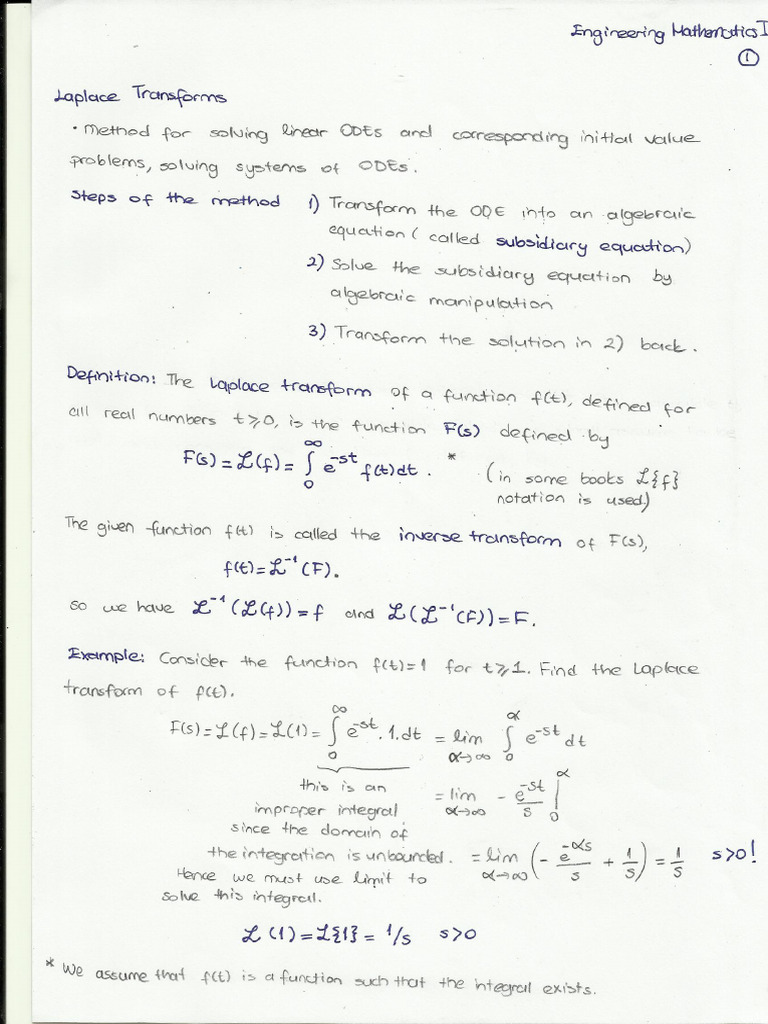 Engineering Mathematics I
①
Laplace Transforms
• Method for solving linear ODEs and corresponding initial value
problems, solving systems of ODEs.
Steps of the method 1) Transform the ODE into an algebraic
equation ( called subsidiary equation)
2) Solve the subsidiary equation by
algebraic manipulation
3) Transform the solution in 2) back.
Definition: The Laplace transform of a function f(t), defined for
all real numbers t⩾0, is the function F(s) defined by
F(s) = ℒ(f) = ∫₀^∞ e^{-st} f(t)dt. * (in some books ℒ{f}
notation is used.)
The given function f(t) is called the inverse transform of F(s),
f(t) = ℒ⁻¹(F).
So we have ℒ⁻¹(ℒ(f)) = f and ℒ(ℒ⁻¹(F)) = F.
Example: Consider the function f(t)=1 for t⩾1. Find the Laplace
transform of f(t).
F(s) = ℒ(f) = ℒ(1) = ∫₀^∞ e^{-st}.1.dt = lim_{α→∞} ∫₀^α e^{-st} dt
this is an
improper integral
since the domain of
the integration is unbounded.
Hence we must use limit to
solve this integral.
= lim_{α→∞} - e^{-st}/s |₀^α
= lim_{α→∞} (- e^{-αs}/s + 1/s) = 1/s s>0!
ℒ(1) = ℒ{1} = 1/s s>0
* We assume that f(t) is a function such that the integral exists.